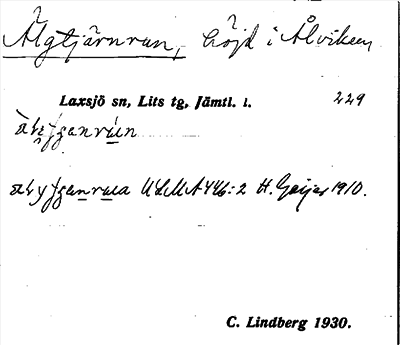 Älgtjärnrun, höjd i Ålviken
Laxsjö sn, Lits tg, Jämtl. l. 229
ULMA 446:2 H. Geijer 1910.
C. Lindberg 1930.